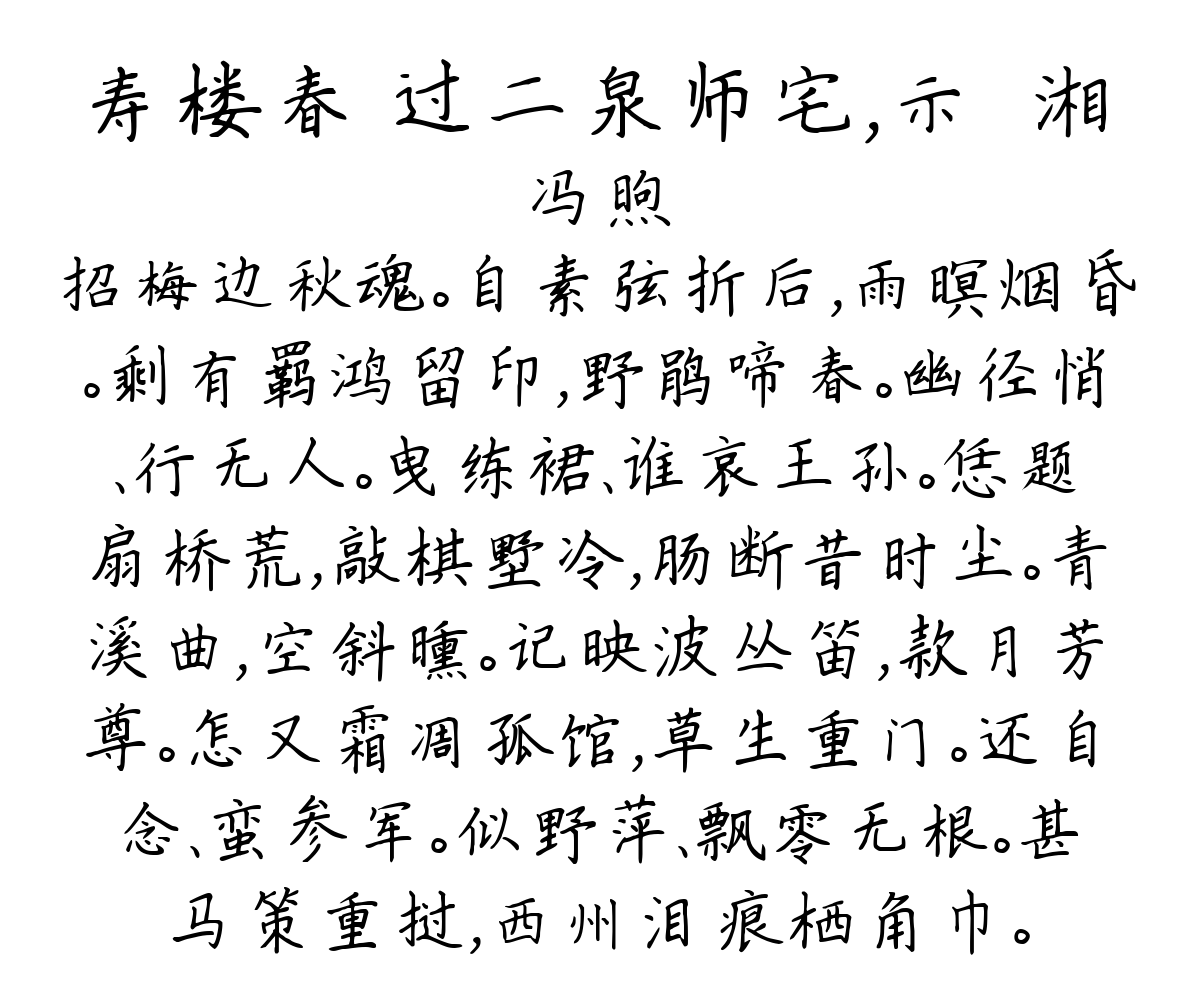 寿楼春 过二泉师宅,示 湘
冯煦
招梅边秋魂。自素弦折后,雨暝烟昏
。剩有羁鸿留印,野鹃啼春。幽径悄
、行无人。曳练裙、谁哀王孙。恁题
扇桥荒,敲棋墅冷,肠断昔时尘。青
溪曲,空斜曛。记映波丛笛,款月芳
尊。怎又霜凋孤馆,草生重门。还自
念、蛮参军。似野萍、飘零无根。甚
马策重挝,西州泪痕栖角巾。